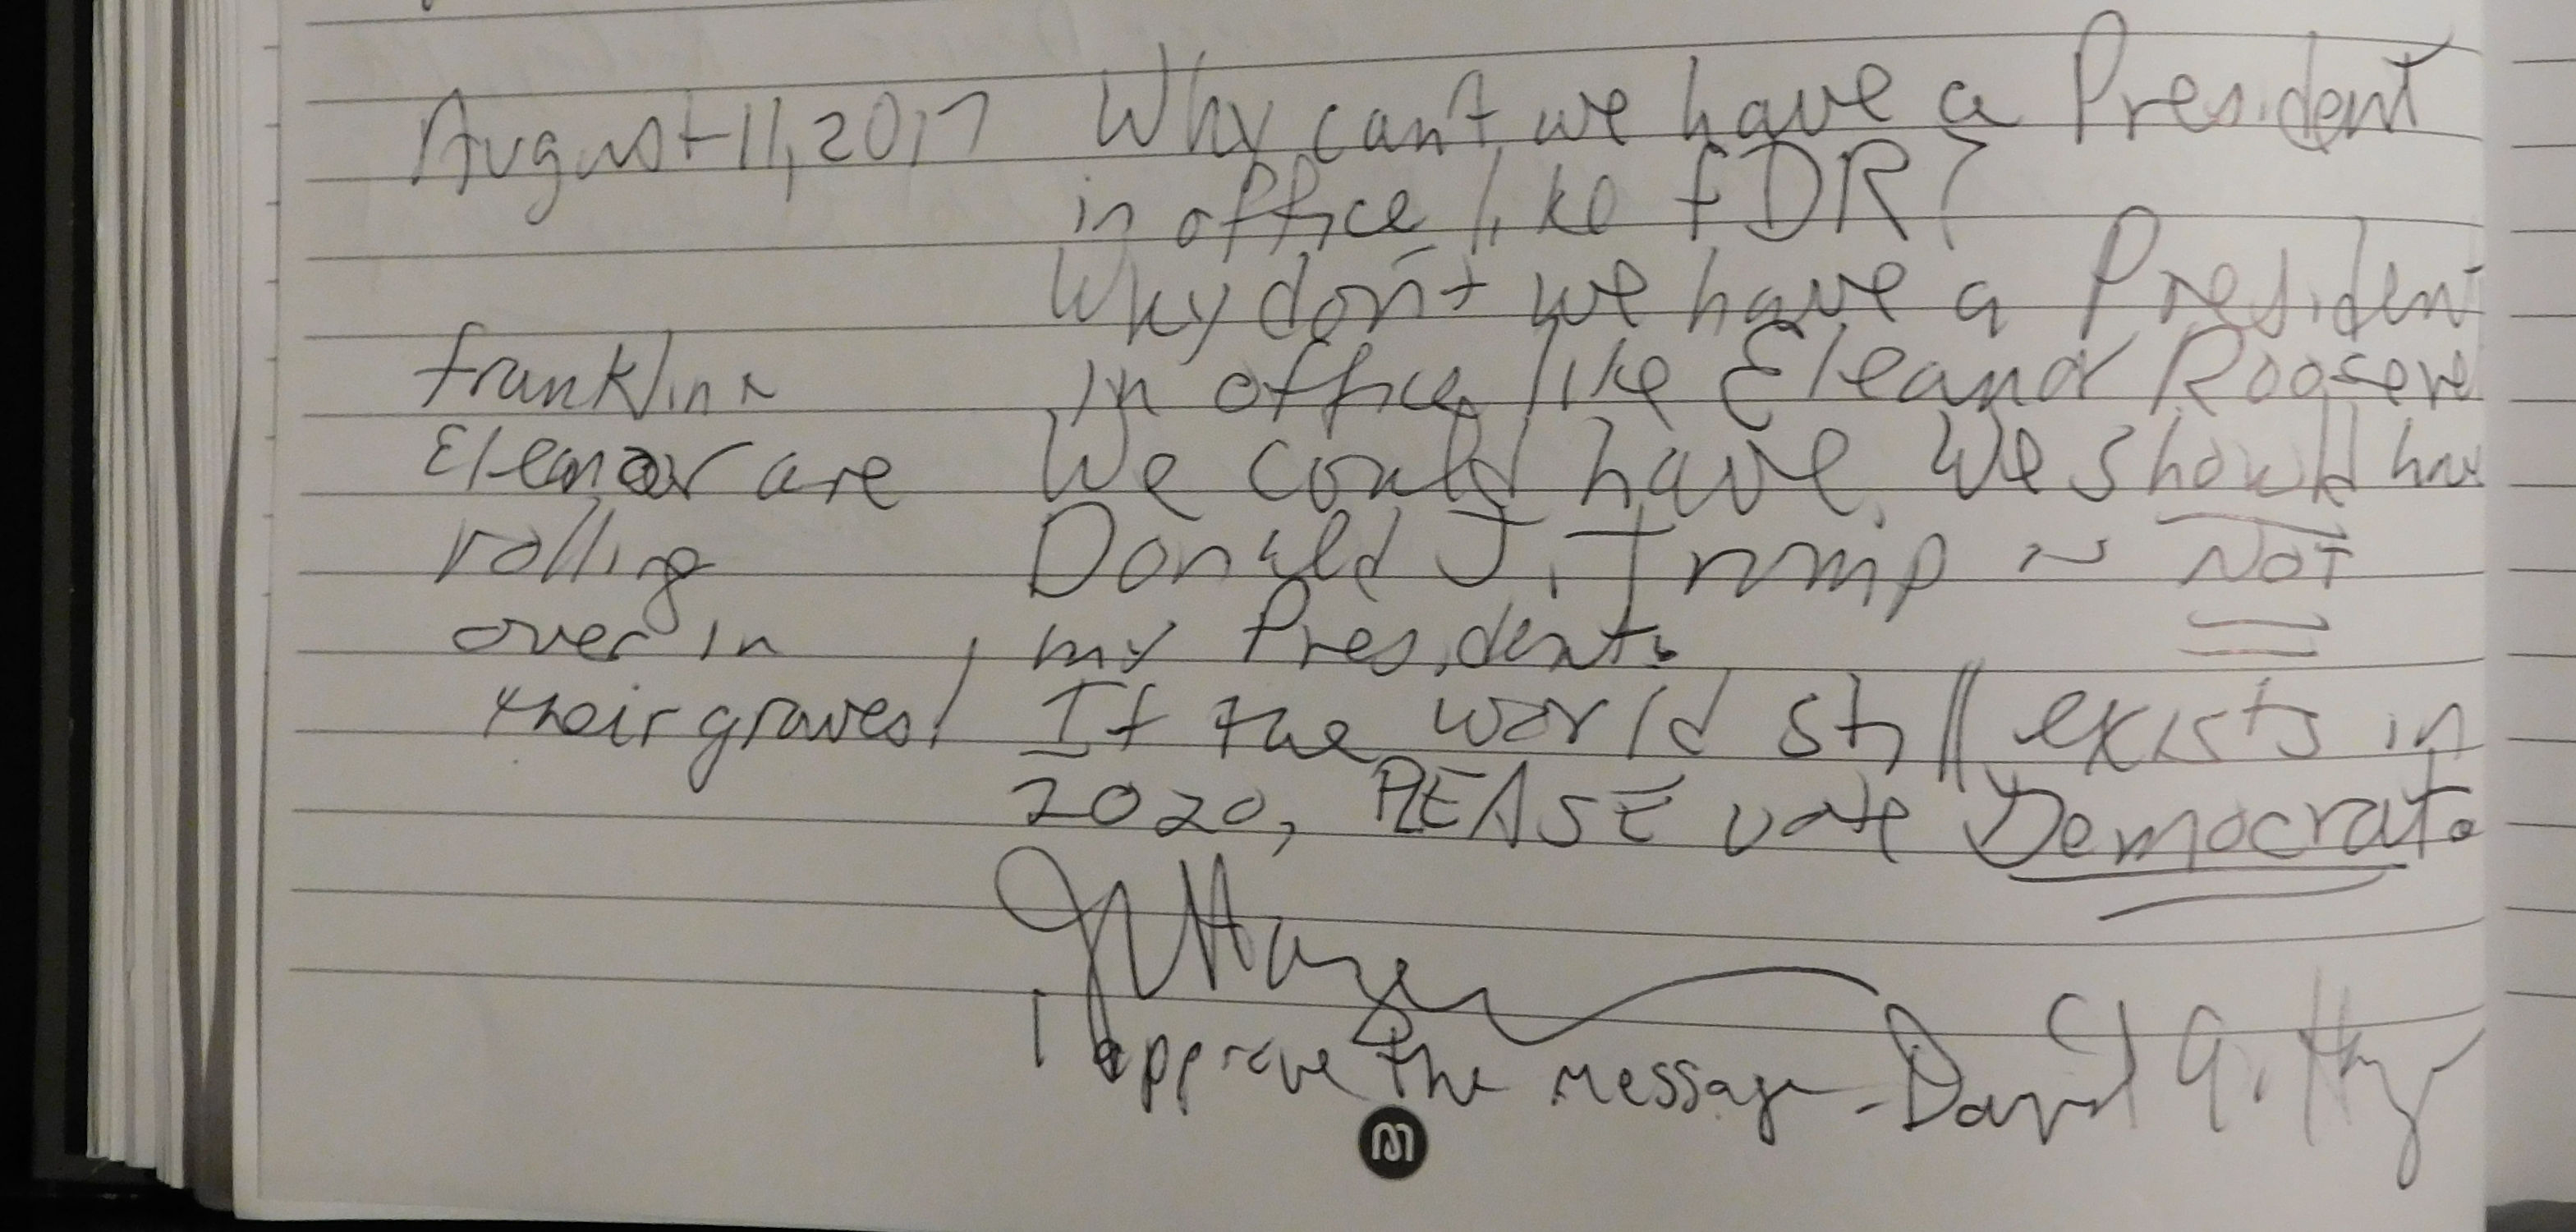 August 11, 2017
Franklin ~
Eleanor are
rolling
over in
their graves!
Why can't we have a President
in office like FDR?
Why don't we have a President
in office like Eleanor Roosevel
We could have. We should hav
Donald J. Trump ~ NOT
my President.
If the world still exists in
2020, PLEASE vote Democrat.
I approve the message - David